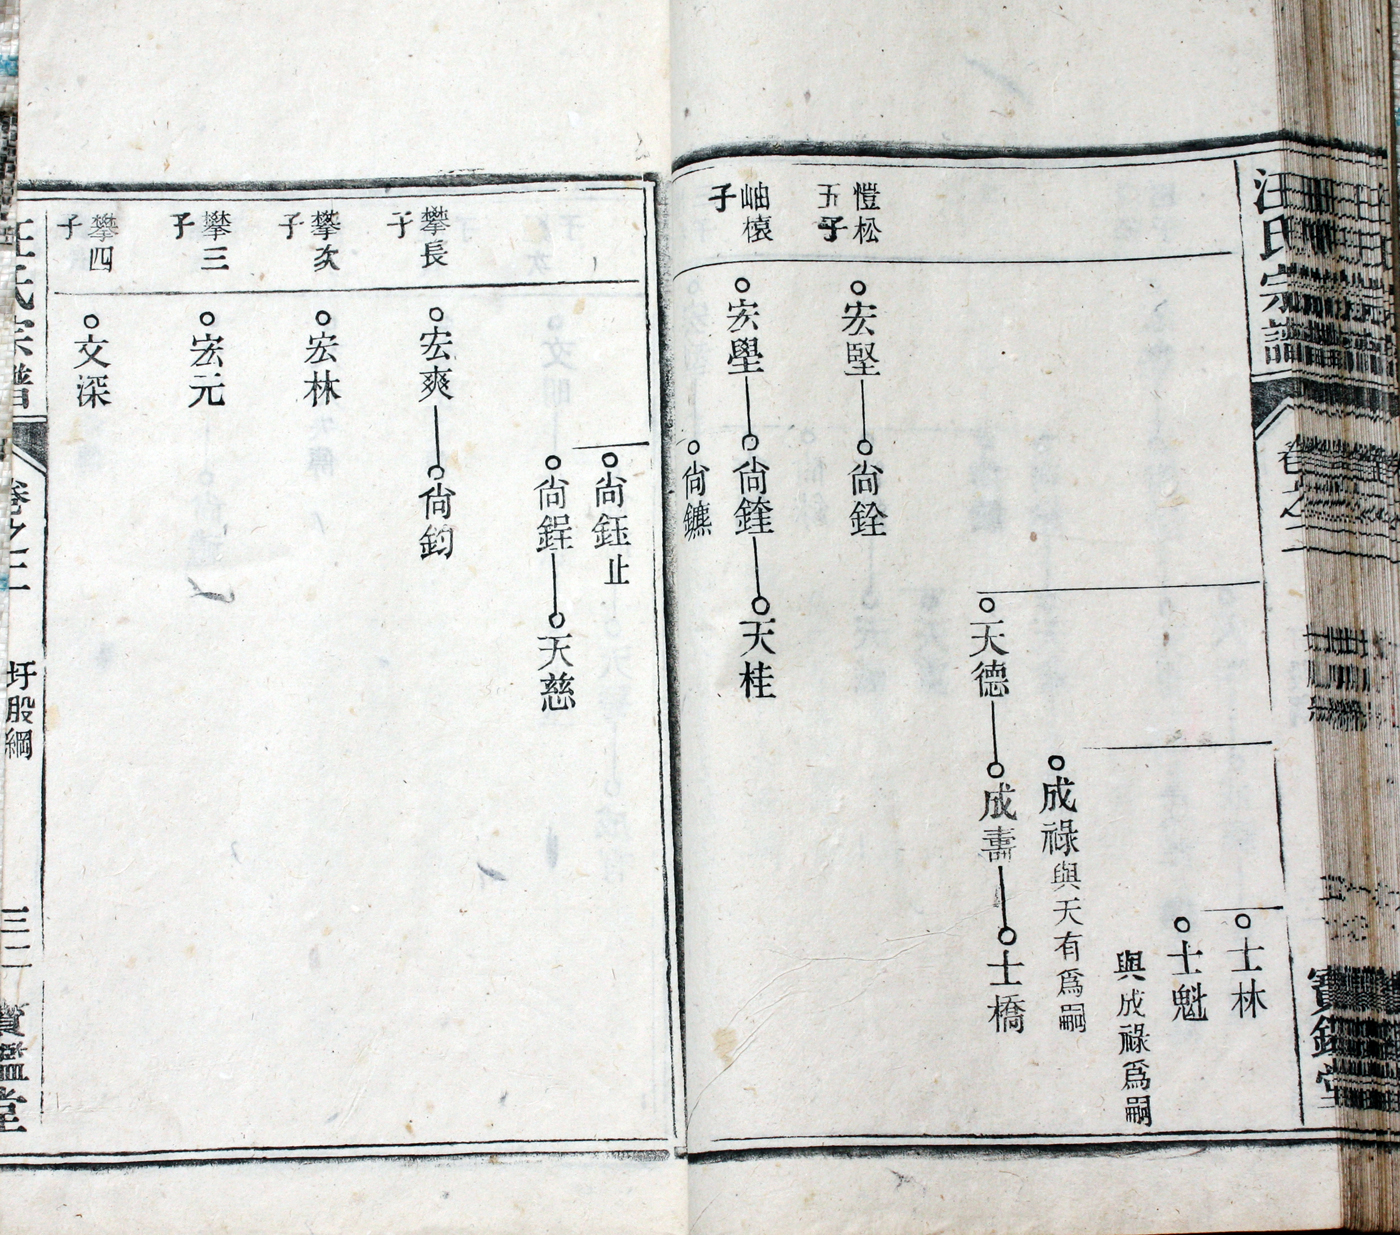 汪氏宗譜
卷之二
寶鑑堂
士林
士魁
與成祿爲嗣
成祿與天有爲嗣
天德
成壽
士橋
愷松
五子
宏堅
尙銓
岫榱
子
宏壆
尙鍷
天桂
尙鑣
尙鈺止
尙鋥
天慈
攀長
子
宏爽
尙鈞
攀次
子
宏林
攀三
子
宏元
攀四
子
文深
汪氏宗譜
卷之二
圩股綱
三二
寶鑑堂